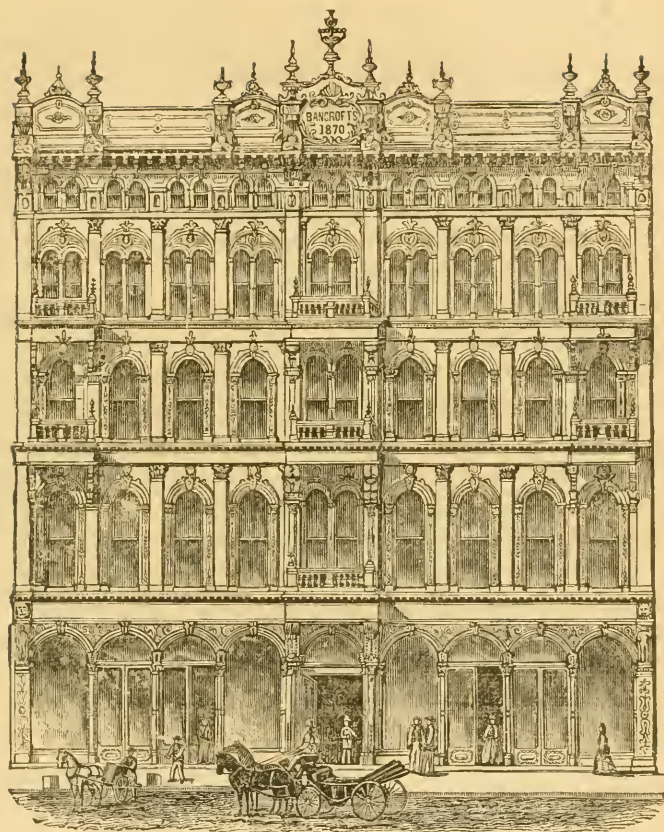 BANCROFT'S
1870